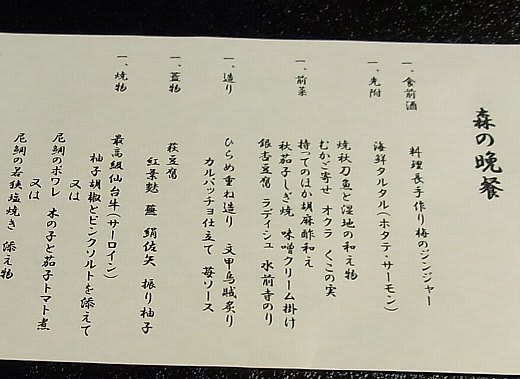 森の晩餐
一、食前酒
料理長手作り梅のジンジャー
一、先附
海鮮タルタル(ホタテ・サーモン)
一、前菜
焼秋刀魚と湿地の和え物
むかご寄せ オクラ くこの実
持ってのほか胡麻酢和え
秋茄子しぎ焼 味噌クリーム掛け
銀杏豆腐 ラディシュ 水前寺のり
一、造り
ひらめ重ね造り 文甲烏賊炙り
カルパッチョ仕立て 苺ソース
一、蓋物
萩豆腐
紅葉麩 蕪 絹佐矢 振り柚子
一、焼物
最高級仙台牛(サーロイン)
柚子胡椒とピンクソルトを添えて
又は
尼鯛のポワレ 木の子と茄子トマト煮
又は
尼鯛の若狭塩焼き 添え物